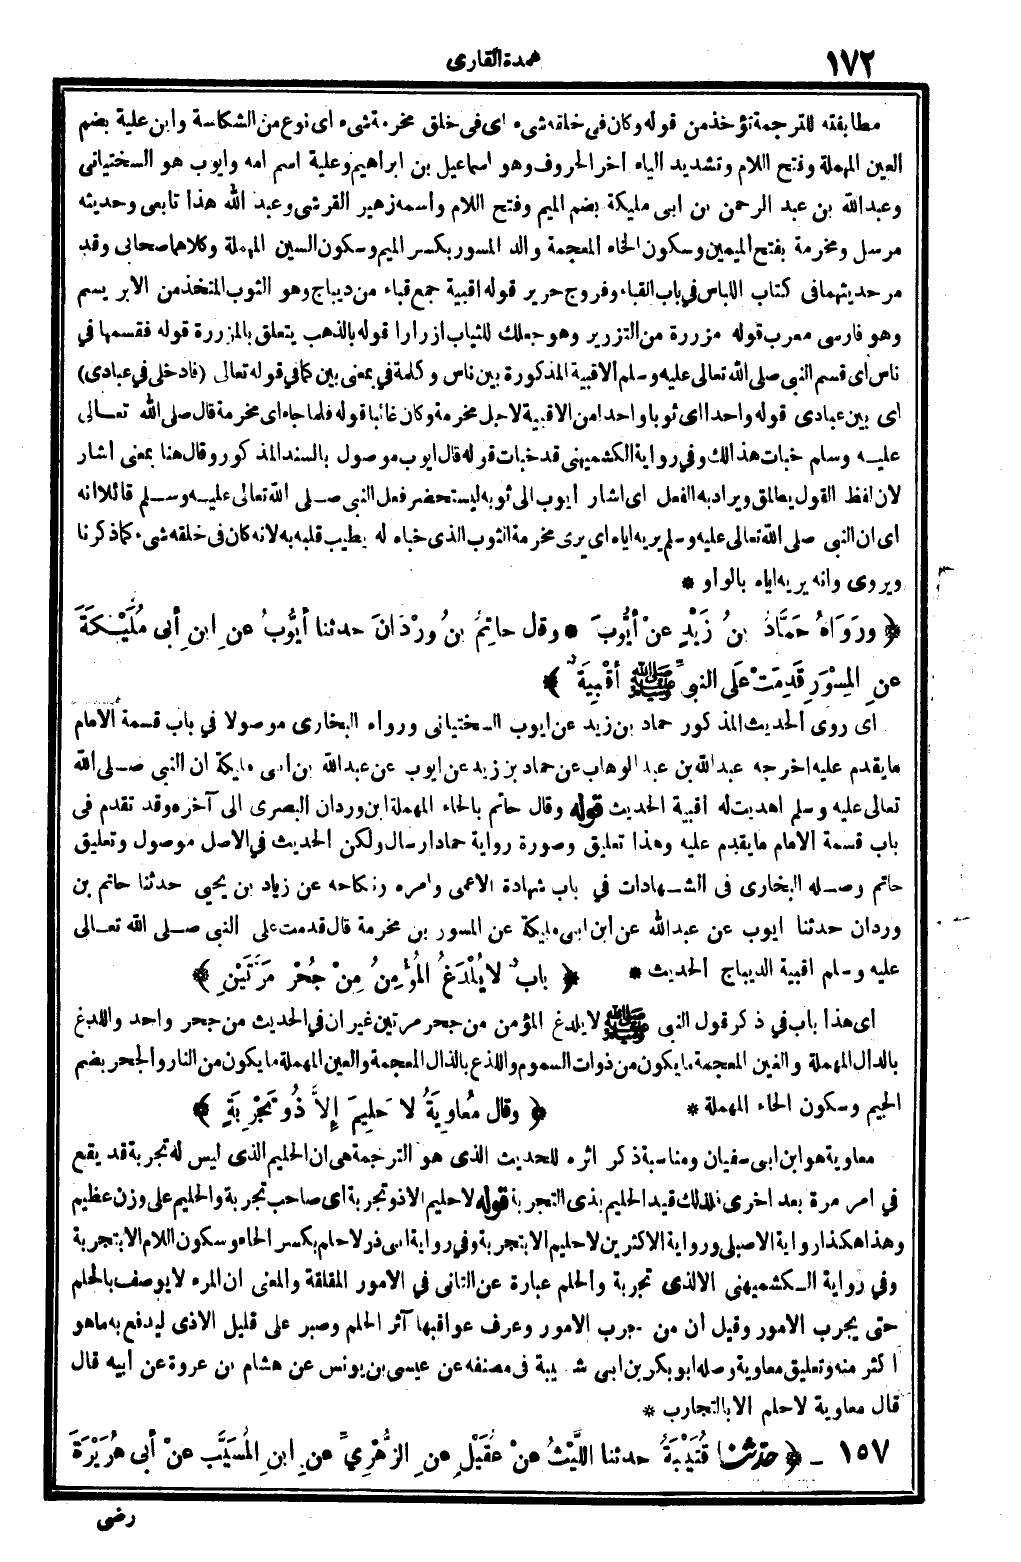 ١٧٢
عمدة القارى
مطابقته للترجمة تؤخذ من قوله وكان فى خلقه شىء اى فى خلق مخرمة شىء اى نوع من الشكاسة وابن علية بضم
العين المهملة وفتح اللام وتشديد الياء آخر الحروف وهو اسماعيل بن ابراهيم وعلية اسم امه وايوب هو السختيانى
وعبدالله بن عبد الرحمن بن ابى مليكة بضم الميم وفتح اللام وأسمه زهير القرشى وعبد الله هذا تابعى وحديثه
مرسل ومخرمة بفتح الميمين وسكون الخاء المعجمة والد المسور بكسر الميم وسكون السين المهملة وكلاهما صحابى وقد
مر حديثهما فى كتاب اللباس فى باب القباء وفروج حرير قوله اقبية جمع قباء من ديباج وهو الثوب المتخذ من الابر يسم
وهو فارسى معرب قوله مزررة من التزرير وهو جعلك للثياب ازرارا قوله بالذهب يتعلق بالمزررة قوله فقسمها فى
ناس اى قسم النبى صلى الله تعالى عليه وسلم الاقبية المذكورة بين ناس وكلمة فى بمعنى بين كما فى قوله تعالى (فادخلى فى عبادى)
اى بين عبادى قوله واحدا اى ثوبا واحدا من الاقبية لاجل مخرمة وكان غائبا قوله فلما جاء اى مخرمة قال صلى الله تعالى
عليه وسلم خبات هذا لك وفى رواية الكشميهنى قد خبات قوله قال ايوب موصول بالسند المذكور وقال هنا بمعنى اشار
لان لفظ القول يطلق ويراد به الفعل اى اشار ايوب الى ثوبه ليستحضر فعل النبى صلى الله تعالى عليه وسلم قائلا انه
اى ان النبى صلى الله تعالى عليه وسلم يريه اياه اى يرى مخرمة الثوب الذى خباه له يطيب قلبه به لانه كان فى خلقه شىء كما ذكرنا
ويروى وانه يريه اياه بالواو *
﴿ ورَوَاهُ حَمَّادُ بنُ زَيْدٍ عنْ أيُّوبَ * وقال حاتِمُ بنُ ورْدَانَ حدثنا أيُّوبُ عنِ ابنِ أبى مُلَيْكَةَ
عنِ المِسْوَرِ قَدِمَتْ عَلَى النبىِّ ﷺ أقْبِيَةٌ ﴾
اى روى الحديث المذكور حماد بن زيد عن ايوب السختيانى ورواه البخارى موصولا فى باب قسمة الامام
ما يقدم عليه اخرجه عبدالله بن عبد الوهاب عن حماد بن زيد عن ايوب عن عبدالله بن ابى مليكة ان النبى صلى الله
تعالى عليه وسلم اهديت له أقبية الحديث قوله وقال حاتم بالحاء المهملة ابن وردان البصرى الى آخره وقد تقدم فى
باب قسمة الامام ما يقدم عليه وهذا تعليق وصورة رواية حماد ارسال ولكن الحديث فى الاصل موصول وتعليق
حاتم وصله البخارى فى الشهادات فى باب شهادة الاعمى وامره ونكاحه عن زياد بن يحيى حدثنا حاتم بن
وردان حدثنا ايوب عن عبدالله عن ابن ابى مليكة عن المسور بن مخرمة قال قدمت على النبى صلى الله تعالى
عليه وسلم اقبية الديباج الحديث *
﴿ بابٌ لا يُلْدَغُ المُؤْمِنُ مِنْ جُحْرٍ مَرَّتَيْنِ ﴾
اى هذا باب فى ذكر قول النبى ﷺ لا يلدغ المؤمن من جحر مرتين غير ان فى الحديث من جحر واحد واللدغ
بالدال المهملة والغين المعجمة ما يكون من ذوات السموم واللذع بالذال المعجمة والعين المهملة ما يكون من النار والجحر بضم
الجيم وسكون الحاء المهملة *
﴿ وقال مُعاوِيَةُ لا حَلِيمَ إِلاَّ ذُو تَجْرِبَةٍ ﴾
معاوية هو ابن ابى سفيان ومناسبة ذكر اثره للحديث الذى هو الترجمة هى ان الحليم الذى ليس له تجربة قد يقع
فى امر مرة بعد اخرى فلذلك قيد الحليم بذى التجربة قوله لا حليم الا ذو تجربة اى صاحب تجربة والحليم على وزن عظيم
وهذا هكذا رواية الاصيلى ورواية الاكثرين لا حليم الا بتجربة وفى رواية ابى ذر لا حلم بكسر الحاء وسكون اللام الا بتجربة
وفى رواية الكشميهنى الا لذى تجربة والحلم عبارة عن التانى فى الامور المقلقة والمعنى ان المرء لا يوصف بالحلم
حتى يجرب الامور وقيل ان من جرب الامور وعرف عواقبها آثر الحلم وصبر على قليل الاذى ليدفع به ما هو
اكثر منه وتعليق معاوية وصله ابو بكر بن ابى شيبة فى مصنفه عن عيسى بن يونس عن هشام بن عروة عن ابيه قال
قال معاوية لا حلم الا بالتجارب *
١٥٧ ــ ﴿ حدثنا قُتَيْبَةُ حدثنا اللَّيْثُ عنْ عُقَيْلٍ عنِ الزُّهْرِيِّ عنِ ابنِ المُسَيَّبِ عنْ أبى هُرَيْرَةَ
رضى